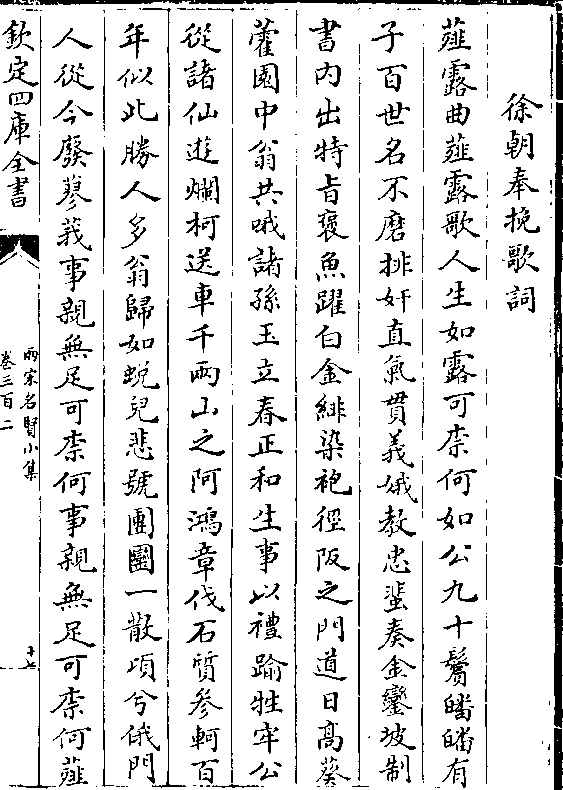 徐朝奉挽歌詞
薤露曲薤露歌人生如露可柰何如公九十鬢皤皤有
子百世名不磨排奸直氣貫義娥教忠蜚奏金鑾坡制
書内出特㫖褒魚躍白金緋染袍徑阪之門道日髙葵
藿園中翁共哦諸孫玉立春正和生事以禮踰牲牢公
從諸仙遊爛柯送車千兩山之阿鴻章伐石質參軻百
年似此勝人多翁歸如蛻兒悲號團圞一散頃兮俄門
人從今廢蓼莪事親無足可柰何事親無足可柰何薤
欽定四庫全書
兩宋名賢小集
卷三百二
十七